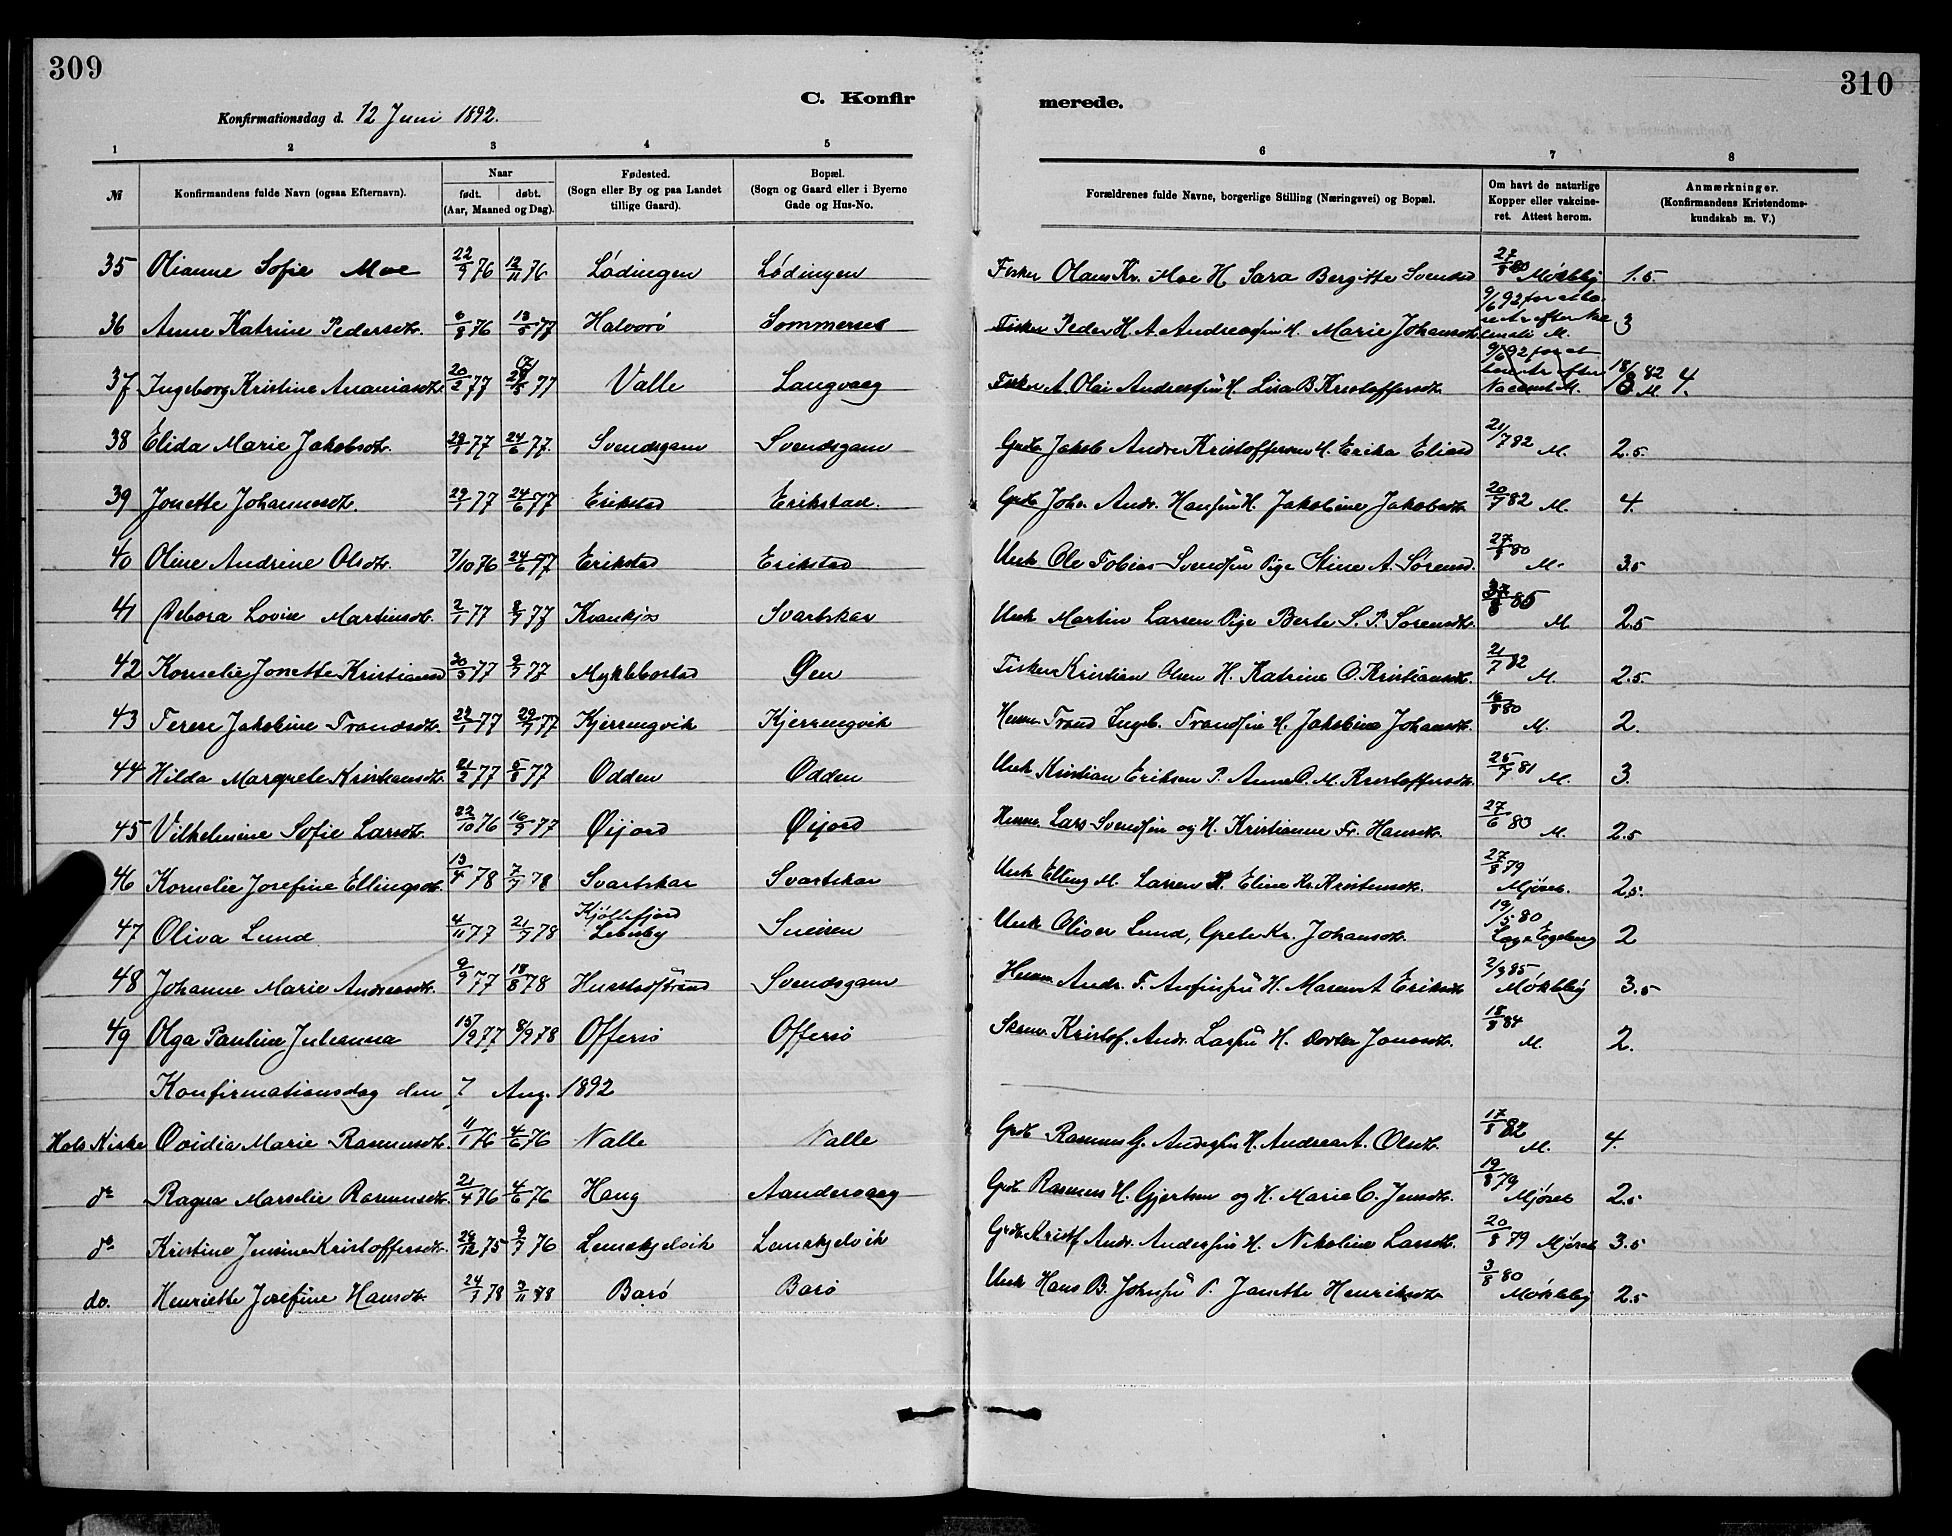 309
310
C. Konfir
merede.
Konfirmationsdag d. 12 Juni 1892.
1 2 3 4 5 6 7 8
№ Konfirmandens fulde Navn (ogsaa Efternavn). Naar født. døbt. (Aar, Maaned og Dag). Fødested. (Sogn eller By og paa Landet tillige Gaard). Bopæl. (Sogn og Gaard eller i Byerne Gade og Hus-No. Forældrenes fulde Navne, borgerlige Stilling (Næringsvei) og Bopæl. Om havt de naturlige Kopper eller vakcineret. Attest herom. Anmærkninger. (Konfirmandens Kristendomskundskab m. V.)
35 Olianne Sofie Moe 22/9 76 12/11 76 Lødingen Lødingen Fisker Olaus Kr. Moe H Sara Bergitte Svensd 27/8 80 Møkleby 1.5
36 Anne Katrine Pedersdtr. 6/8 76 13/5 77 Halvorø Sommerset Fisker Peder H. A. Andreassøn H. Marie Johansdtr. 9/6 92 M. 3
37 Ingeborg Kristine Ananiasdtr. 20/2 77 77 Valle Langvaag Fisker A. Olai Anderssøn H. Lisa B. Kristoffersdtr. 9/6 92 M. 18/8 82 M. 4.
38 Elida Marie Jakobsdtr. 77 24/6 77. Svendsgam Svendsgam Grdb. Jakob Andr. Kristoffersen H. Erika Eliasd 21/7 82 M. 2.5
39 Jonette Johannesdtr. 77 24/6 77 Erikstad Erikstad. Grdb. Johs. Andr. Hanssøn H. Jakobine Jakobsdtr. 20/7 82 M. 4.
40 Oline Andrine Olsdtr. 7/10 76 24/6 77 Erikstad Erikstad Unk Ole Tobias Svendsøn Pige Stine A. Sørensd. 27/8 80 M. 3.5
41 Debora Lovise Martinsdtr. 2/1 77 77 Kvankjos Svartskar Unk Martin Larsen Pige Berte S. P. Sørensdtr. 85 M. 2.5
42 Kornelie Jonette Kristiansd 30/5 77 77 Myklebostad Øen Fisker Kristian Olsen H. Katrine O. Kristiansdtr. 21/7 82 M. 2.5.
43 Terese Jakobine Trondsdtr. 22/1 77 29/7 77 Kjerringvik Kjerringvik Husm. Trond Ingeb. Trondsøn H. Jakobine Johansdtr. 16/8 80 M. 2.
44 Hilda Margrete Kristiansdtr. 21/2 77 5/8 77 Odden Odden Unk Kristian Eriksen P. Anne O. M. Kristoffersdtr. 25/7 81 M. 3.
45 Vilhelmine Sofie Larsdtr. 22/10 76 16/9 77 Øijord Øijord Husm. Lars Svendsøn og H. Kristianne Fr. Hansdtr. 27/6 80 M. 2.5
46 Kornelie Josefine Ellingsdtr. 13/4 78 7/7 78 Svartskar Svartskar Unk Elling M. Larsen P. Eline Kr. Kristensdtr. 27/8 79 Mjöset. 2.5.
47 Oliva Lund 4/11 77 21/7 78 Kjöllefjord Lebesby Sneisen Unk Oliver Lund, Grete Kr. Johansdtr. 19/5 80 Læge Egeberg 2
48 Johanne Marie Andreasdtr. 9/9 77 18/8 78 Hustadstrand Svendsgam Husm. Andr. F. Anfinsøn H. Maren A Eriksdtr. 2/3 85 Møkleby 3.5
49 Olga Pauline Julianna 15/9 77 8/9 78 Offersø Offersø Kristof. Andr. Larssøn H. Dortea Jonasdtr. 18/8 84 M. 2.
Konfirmationsdag den 7 Aug. 1892
Hols Kirke Ovidia Marie Rasmusdtr. 11/1 76 4/6 76 Valle Valle Grdb. Rasmus G. Anderssøn H. Andrea A. Olsdtr. 17/8 82 M. 4.
do Ragna Marselie Rasmusdtr. 21/4 76 4/6 76 Haug Aandervaag Grdb. Rasmus H. Gjertsen og H. Marie C. Jensdtr. 19/8 79 Mjöset 2.5
do Kristine Jensine Kristoffersdtr. 75 9/7 76 Lemekjelvik Lemekjelvik Grdb. Kristf Andr. Anderssøn H. Nikoline Larsdtr. 20/8 79 Mjöset 3.5
do. Henriette Josefine Hansdtr. 24/1 78 3/11 88 Barø Barø Unk Hans B. Johnsøn P. Janette Henriksdtr 3/8 80 Møkleby 2.5